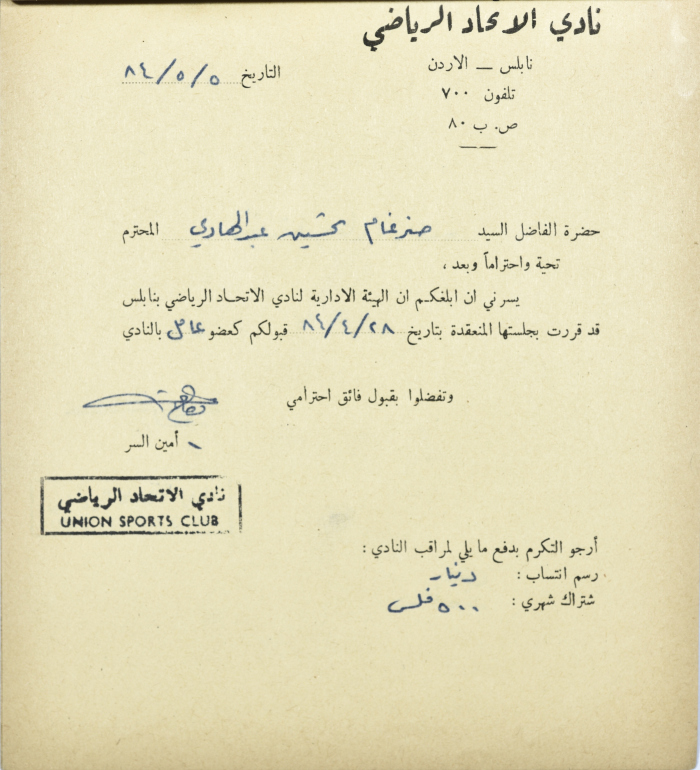 نادي الاتحاد الرياضي
نابلس — الاردن
تلفون ٧٠٠
ص. ب ٨٠
التاريخ ٨٤/٥/٥
حضرة الفاضل السيد ضرغام تحسين عبد الهادي المحترم
تحية واحتراماً وبعد ،
يسرني ان ابلغكم ان الهيئة الادارية لنادي الاتحاد الرياضي بنابلس
قد قررت بجلستها المنعقدة بتاريخ ٨٤/٤/٢٨ قبولكم كعضو عامل بالنادي
وتفضلوا بقبول فائق احترامي
أمين السر
نادي الاتحاد الرياضي
UNION SPORTS CLUB
أرجو التكرم بدفع ما يلي لمراقب النادي :
رسم انتساب : دينار
شتراك شهري : ٥٠٠ فلس